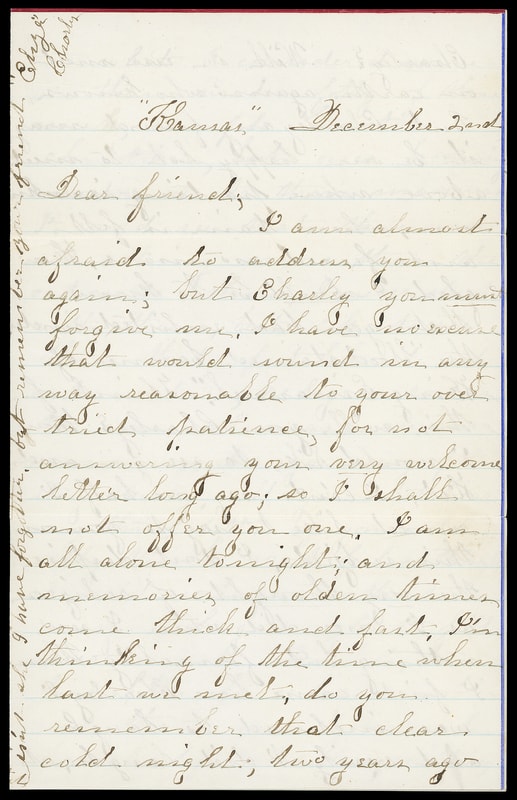 "Kansas" December 2nd
Dear friend;
I am almost
afraid to address you
again; but Charley you must
forgive me. I have no excuse
that would sound in any
way reasonable to your over
tried patience, for not
answering your very welcome
letter long ago; so I shall
not offer you one. I am
all alone tonight; and
memories of olden times
come thick and fast, I'm
thinking of the time when
last we met, do you
remember that clear
cold night, two years ago
I have forgotten, but remember your friend "Eliza"
Charley